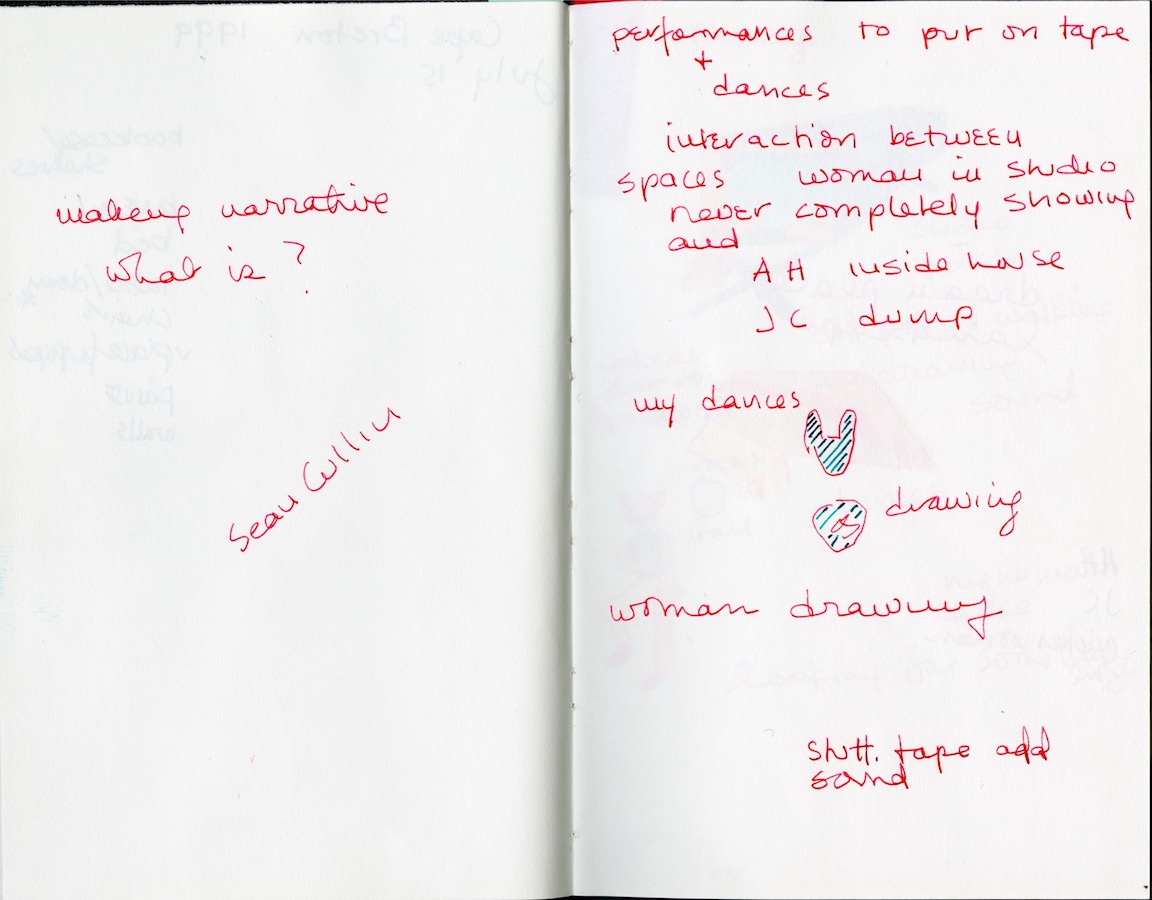 making narrative
what is ?
Sean Cullin
performances to put on tape
+
dances
interaction between
spaces woman in studio
never completely showing
and
AH inside house
JC dump
my dances
drawing
woman drawing
tape add